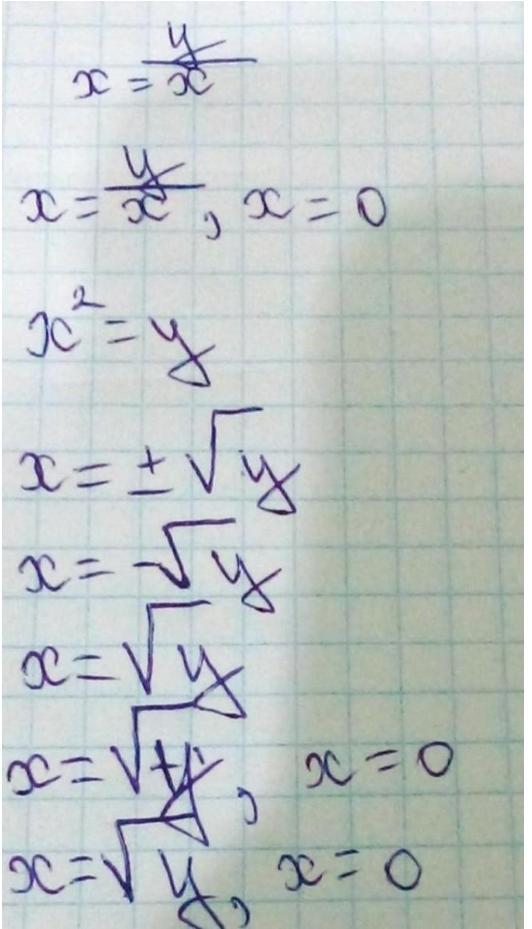 x = y/x
x = y/x, x = 0
x² = y
x = ± √y
x = -√y
x = √y
x = √+y, x = 0
x = √y, x = 0